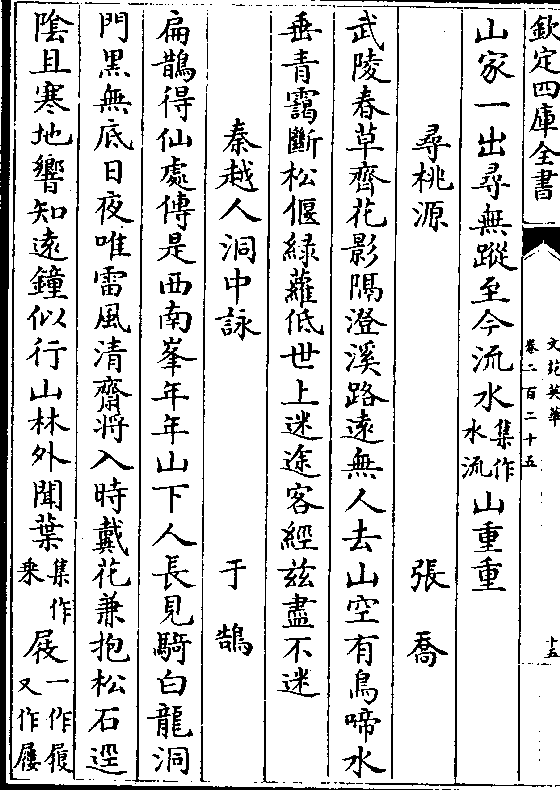 欽定四庫全書
文苑英華
卷二百二十五
十五
山家一出尋無蹤至今流水集作水流山重重
尋桃源 張喬
武陵春草齊花影隔澄溪路遠無人去山空有鳥啼水
垂青靄斷松偃綠蘿低世上迷途客經兹盡不迷
秦越人洞中詠 于鵠
扁鵲得仙處傳是西南峯年年山下人長見騎白龍洞
門黑無底日夜唯雷風清齋将入時戴花兼抱松石逕
陰且寒地響知遠鐘似行山林外聞葉集作乘屐一作履又作屨